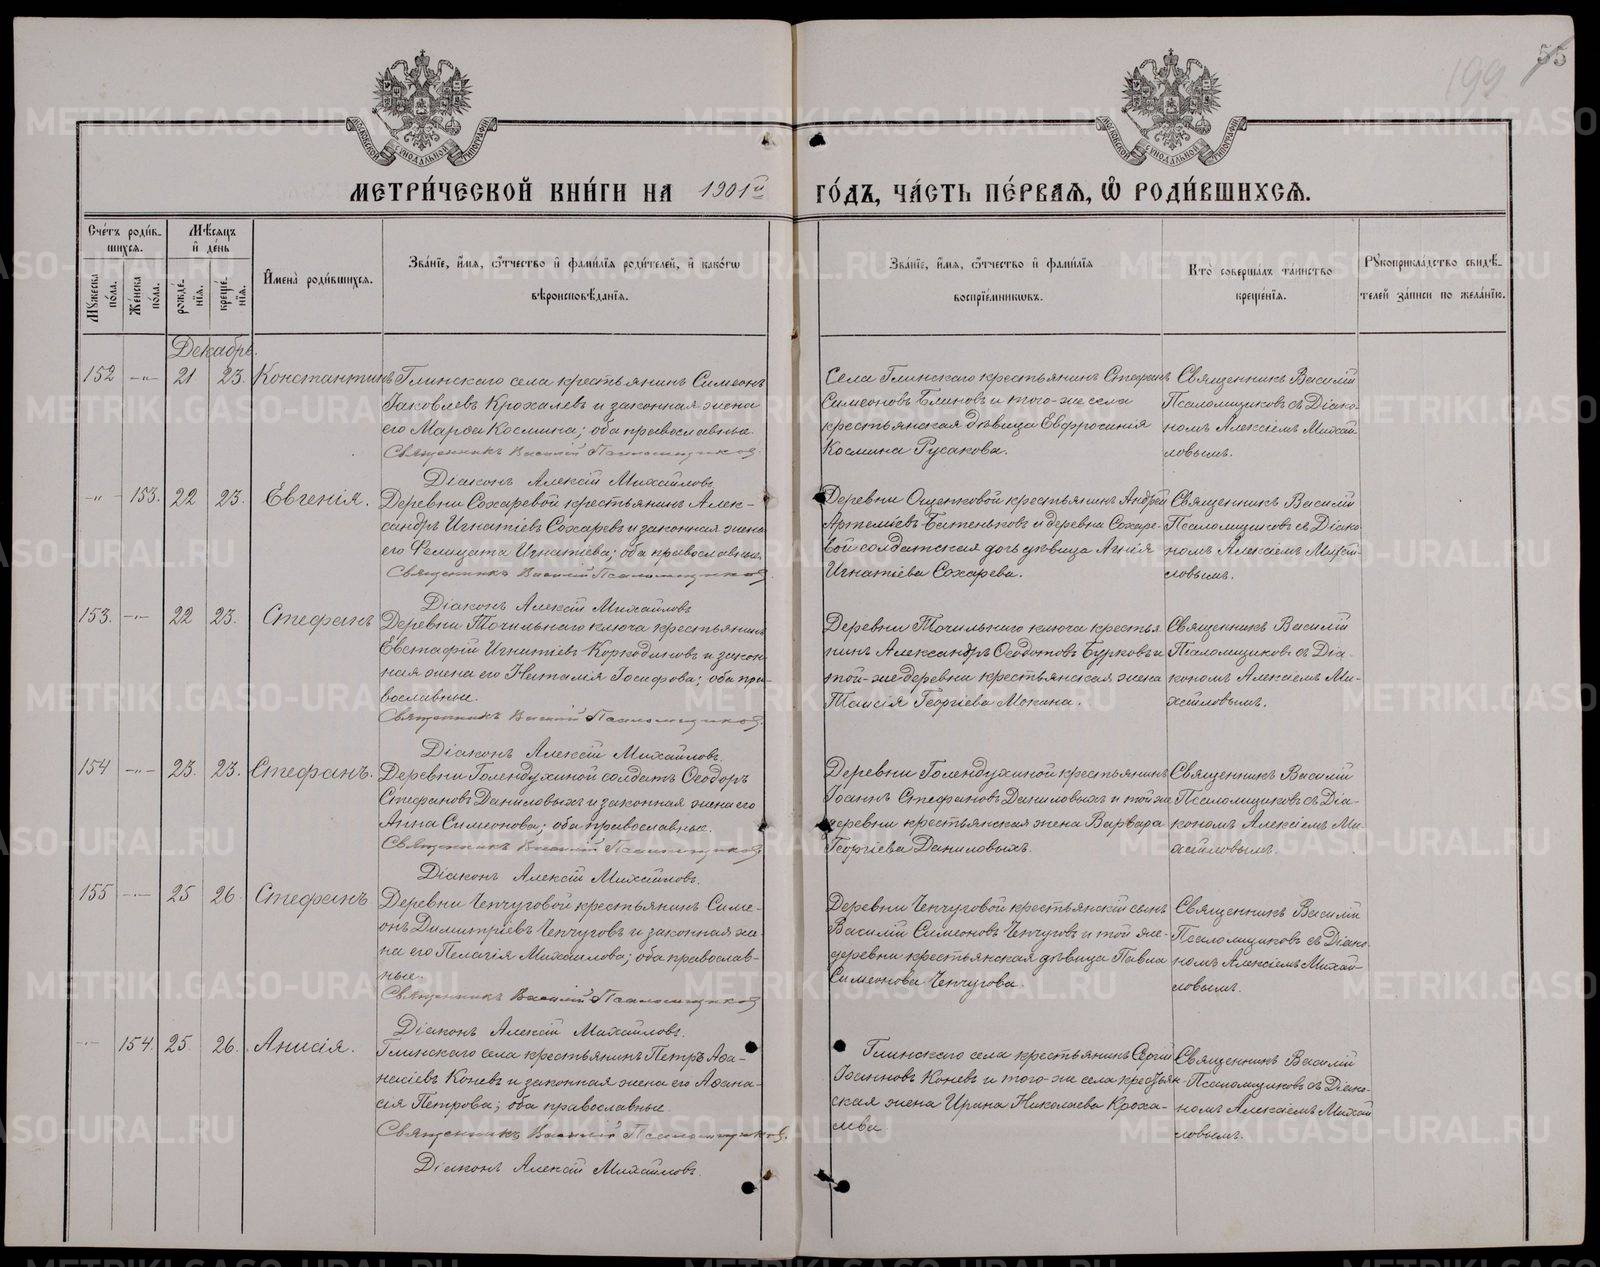 199 55
МЕТРИ́ЧЕСКОЙ КНИ́ГИ НА 1901й ГО́ДЪ, ЧА́СТЬ ПЕ́РВАЯ, Ѡ҆ РОДИ́ВШИХСЯ.
Сче́тъ роди́в-
шихся.
Мѣ́сяцъ
и҆ де́нь
Мꙋ́жеска
по́ла.
Же́нска
по́ла.
рожде-
нїя.
креще-
нїя.
И҆мена̀ роди́вшихся.
Зва́нїе, и҆́мя, ѻ҆́тчество и҆ фами́лїя роди́телей, и҆ како́гѡ
вѣроисповѣ́данїя.
Зва́нїе, и҆́мя, ѻ҆́тчество и҆ фами́лїя
воспрїе́мникѡвъ.
Кто̀ соверша́лъ та́инство
креще́нїя.
Рꙋкоприкла́дство свидѣ́-
телей за́писи по жела́нїю.
Декабрь.
152 -"- 21 23. Константинъ
Глинскаго села крестьянинъ Симеонъ
Іаковлевъ Крохалевъ и законная жена
его Марѳа Космина; оба православные.
Священникъ Василій Псаломщиковъ.
Діаконъ Алексій Михайловъ
Села Глинскаго крестьянинъ Стефанъ
Симеоновъ Блиновъ и того-же села
крестьянская дѣвица Евфросинія
Космина Русакова.
Священникъ Василій
Псаломщиковъ съ Діако-
номъ Алексіемъ Михай-
ловымъ.
-"- 153. 22 23. Евгенія.
Деревни Сохаревой крестьянинъ Алек-
сандръ Игнатіевъ Сохаревъ и законная жена
его Фелицата Игнатіева; оба православные.
Священникъ Василій Псаломщиковъ.
Діаконъ Алексій Михайловъ
Деревни Ощепковой крестьянинъ Андрей
Артеміевъ Батеньковъ и деревни Сохаре-
вой солдатская дочь дѣвица Агнія
Игнатіева Сохарева.
Священникъ Василій
Псаломщиковъ съ Діако-
номъ Алексіемъ Михай-
ловымъ.
153. -"- 22 23. Стефанъ
Деревни Точильнаго ключа крестьянинъ
Евстафій Игнатіевъ Коркодиновъ и закон-
ная жена его Наталія Іосифова; оба пра-
вославные.
Священникъ Василій Псаломщиковъ.
Діаконъ Алексій Михайловъ.
Деревни Точильнаго ключа крестья
нинъ Александръ Ѳеодотовъ Бурковъ и
той-же деревни крестьянская жена
Таисія Георгіева Мокина.
Священникъ Василій
Псаломщиковъ съ Діа-
кономъ Алексіемъ Ми-
хайловымъ.
154 -"- 23. 23. Стефанъ.
Деревни Голендухиной солдатъ Ѳеодоръ
Стефановъ Даниловыхъ и законная жена его
Анна Симеонова; оба православные.
Священникъ Василій Псаломщиковъ
Діаконъ Алексій Михайловъ.
Деревни Голендухиной крестьянинъ
Іоаннъ Стефановъ Даниловыхъ и той же
деревни крестьянская жена Варвара
Георгіева Даниловыхъ.
Священникъ Василій
Псаломщиковъ съ Діа-
кономъ Алексіемъ Ми-
хайловымъ.
155 -"- 25 26. Стефанъ
Деревни Чепчуговой крестьянинъ Симе-
онъ Димитріевъ Чепчуговъ и законная же-
на его Пелагія Михаилова; оба православ-
ные.
Священникъ Василій Псаломщиковъ
Діаконъ Алексій Михайловъ.
Деревни Чепчуговой крестьянскій сынъ
Василій Симеоновъ Чепчуговъ и той же-
деревни крестьянская дѣвица Павла
Симеонова Чепчугова.
Священникъ Василій
Псаломщиковъ съ Діако-
номъ Алексіемъ Михай-
ловымъ.
-"- 154. 25. 26. Анисія.
Глинскаго села крестьянинъ Петръ Аѳа-
насіевъ Коневъ и законная жена его Аѳана-
сія Петрова; оба православные.
Священникъ Василій Псаломщиковъ.
Діаконъ Алексій Михайловъ.
Глинскаго села крестьянинъ Сергій
Іоанновъ Коневъ и того-же села крестьян-
ская жена Ирина Николаева Кроха-
лева.
Священникъ Василій
Псаломщиковъ съ Діако-
номъ Алексіемъ Михай
ловымъ.
METRIKI.GASO-URAL.RU